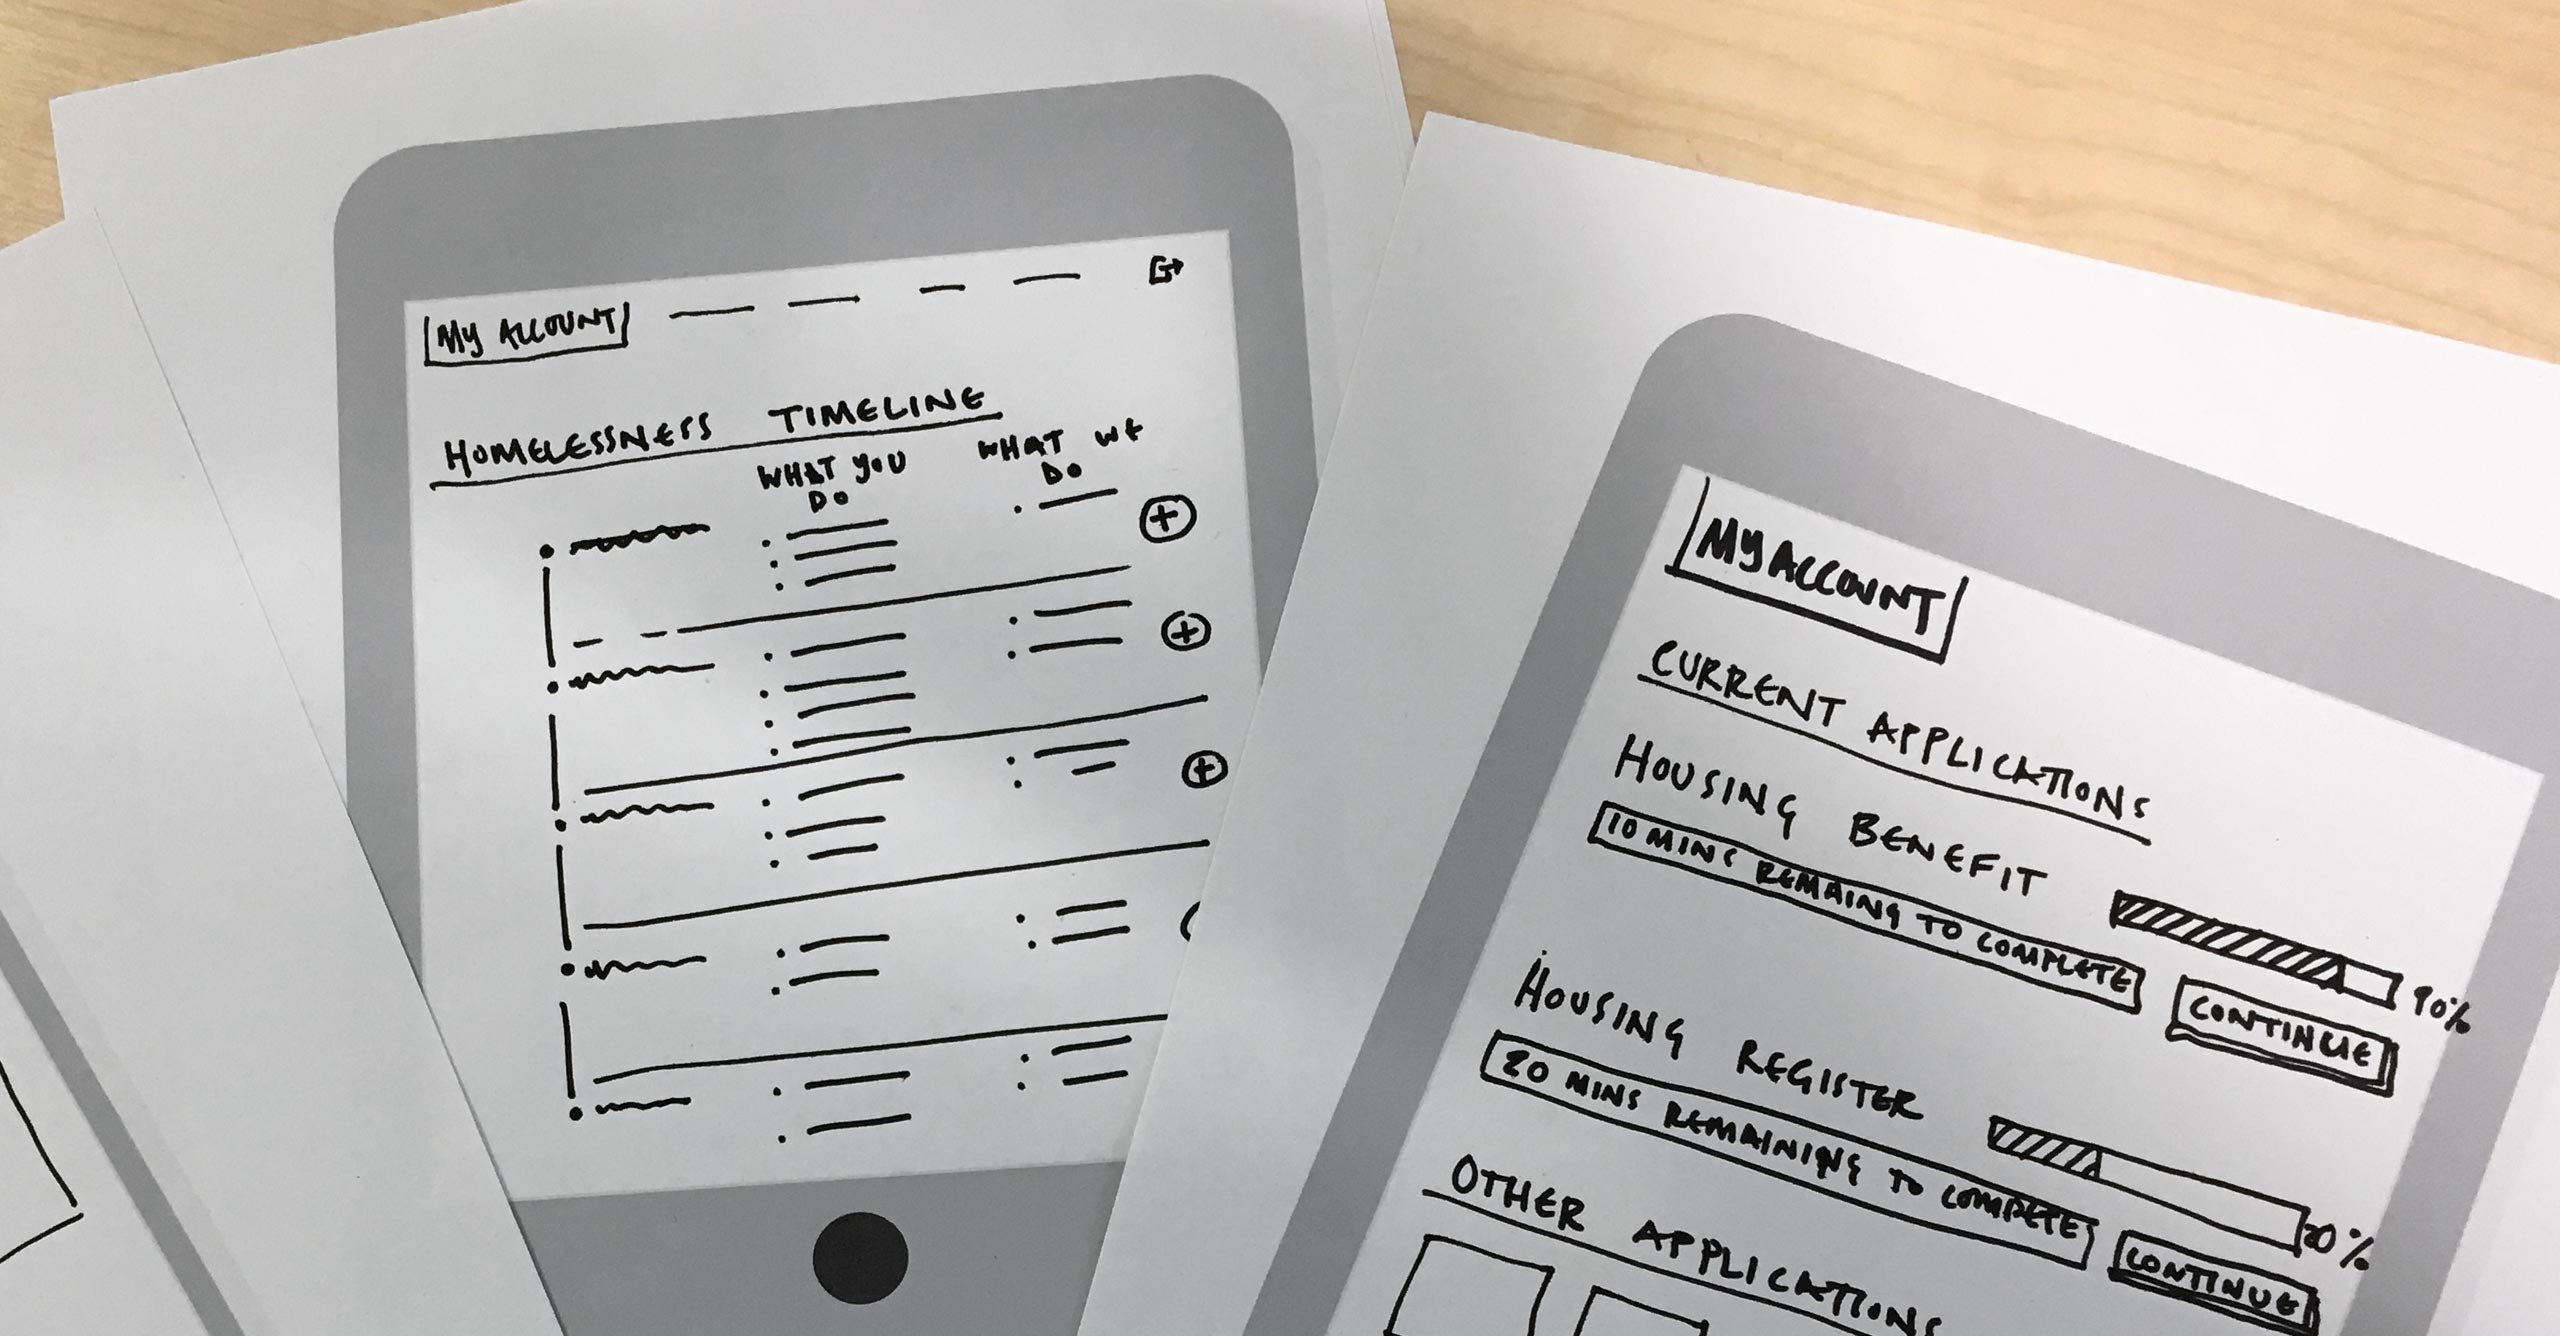 MY ACCOUNT
HOMELESSNESS TIMELINE
WHAT YOU DO
WHAT WE DO
MY ACCOUNT
CURRENT APPLICATIONS
HOUSING BENEFIT
90%
10 MINS REMAING TO COMPLETE
CONTINUE
HOUSING REGISTER
20%
20 MINS REMAINING TO COMPETE
CONTINUE
OTHER APPLICATIONS